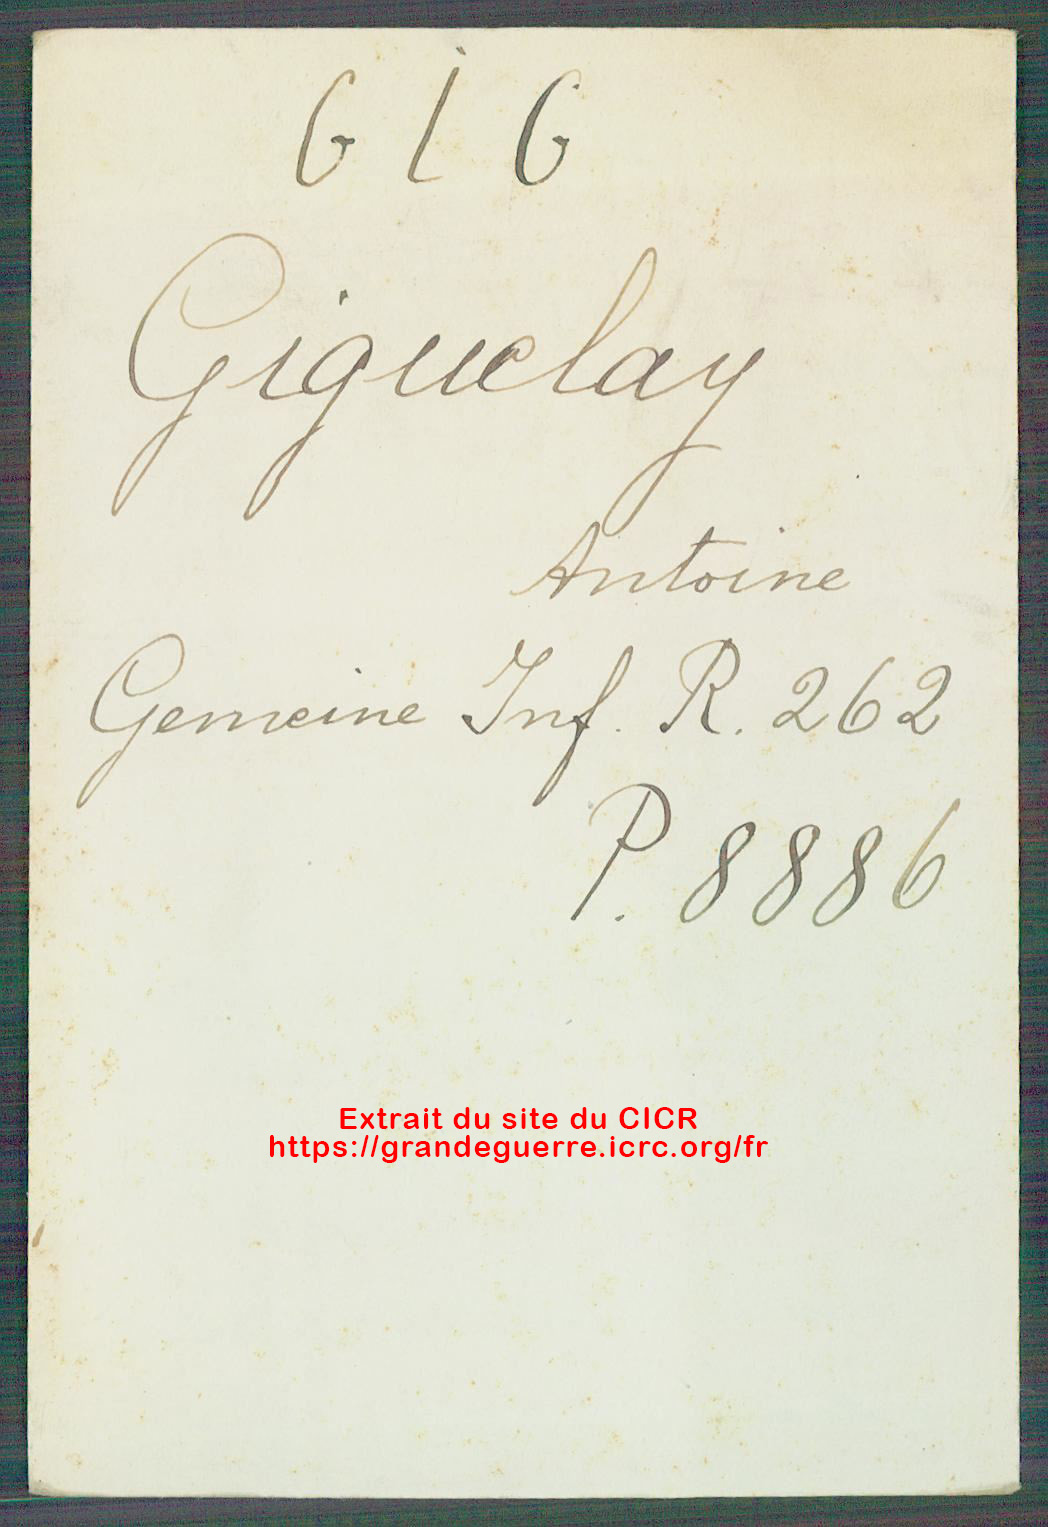 G i G
Giquelay
Antoine
Gemeine Inf. R. 262
P. 8886
Extrait du site du CICR
https://grandeguerre.icrc.org/fr